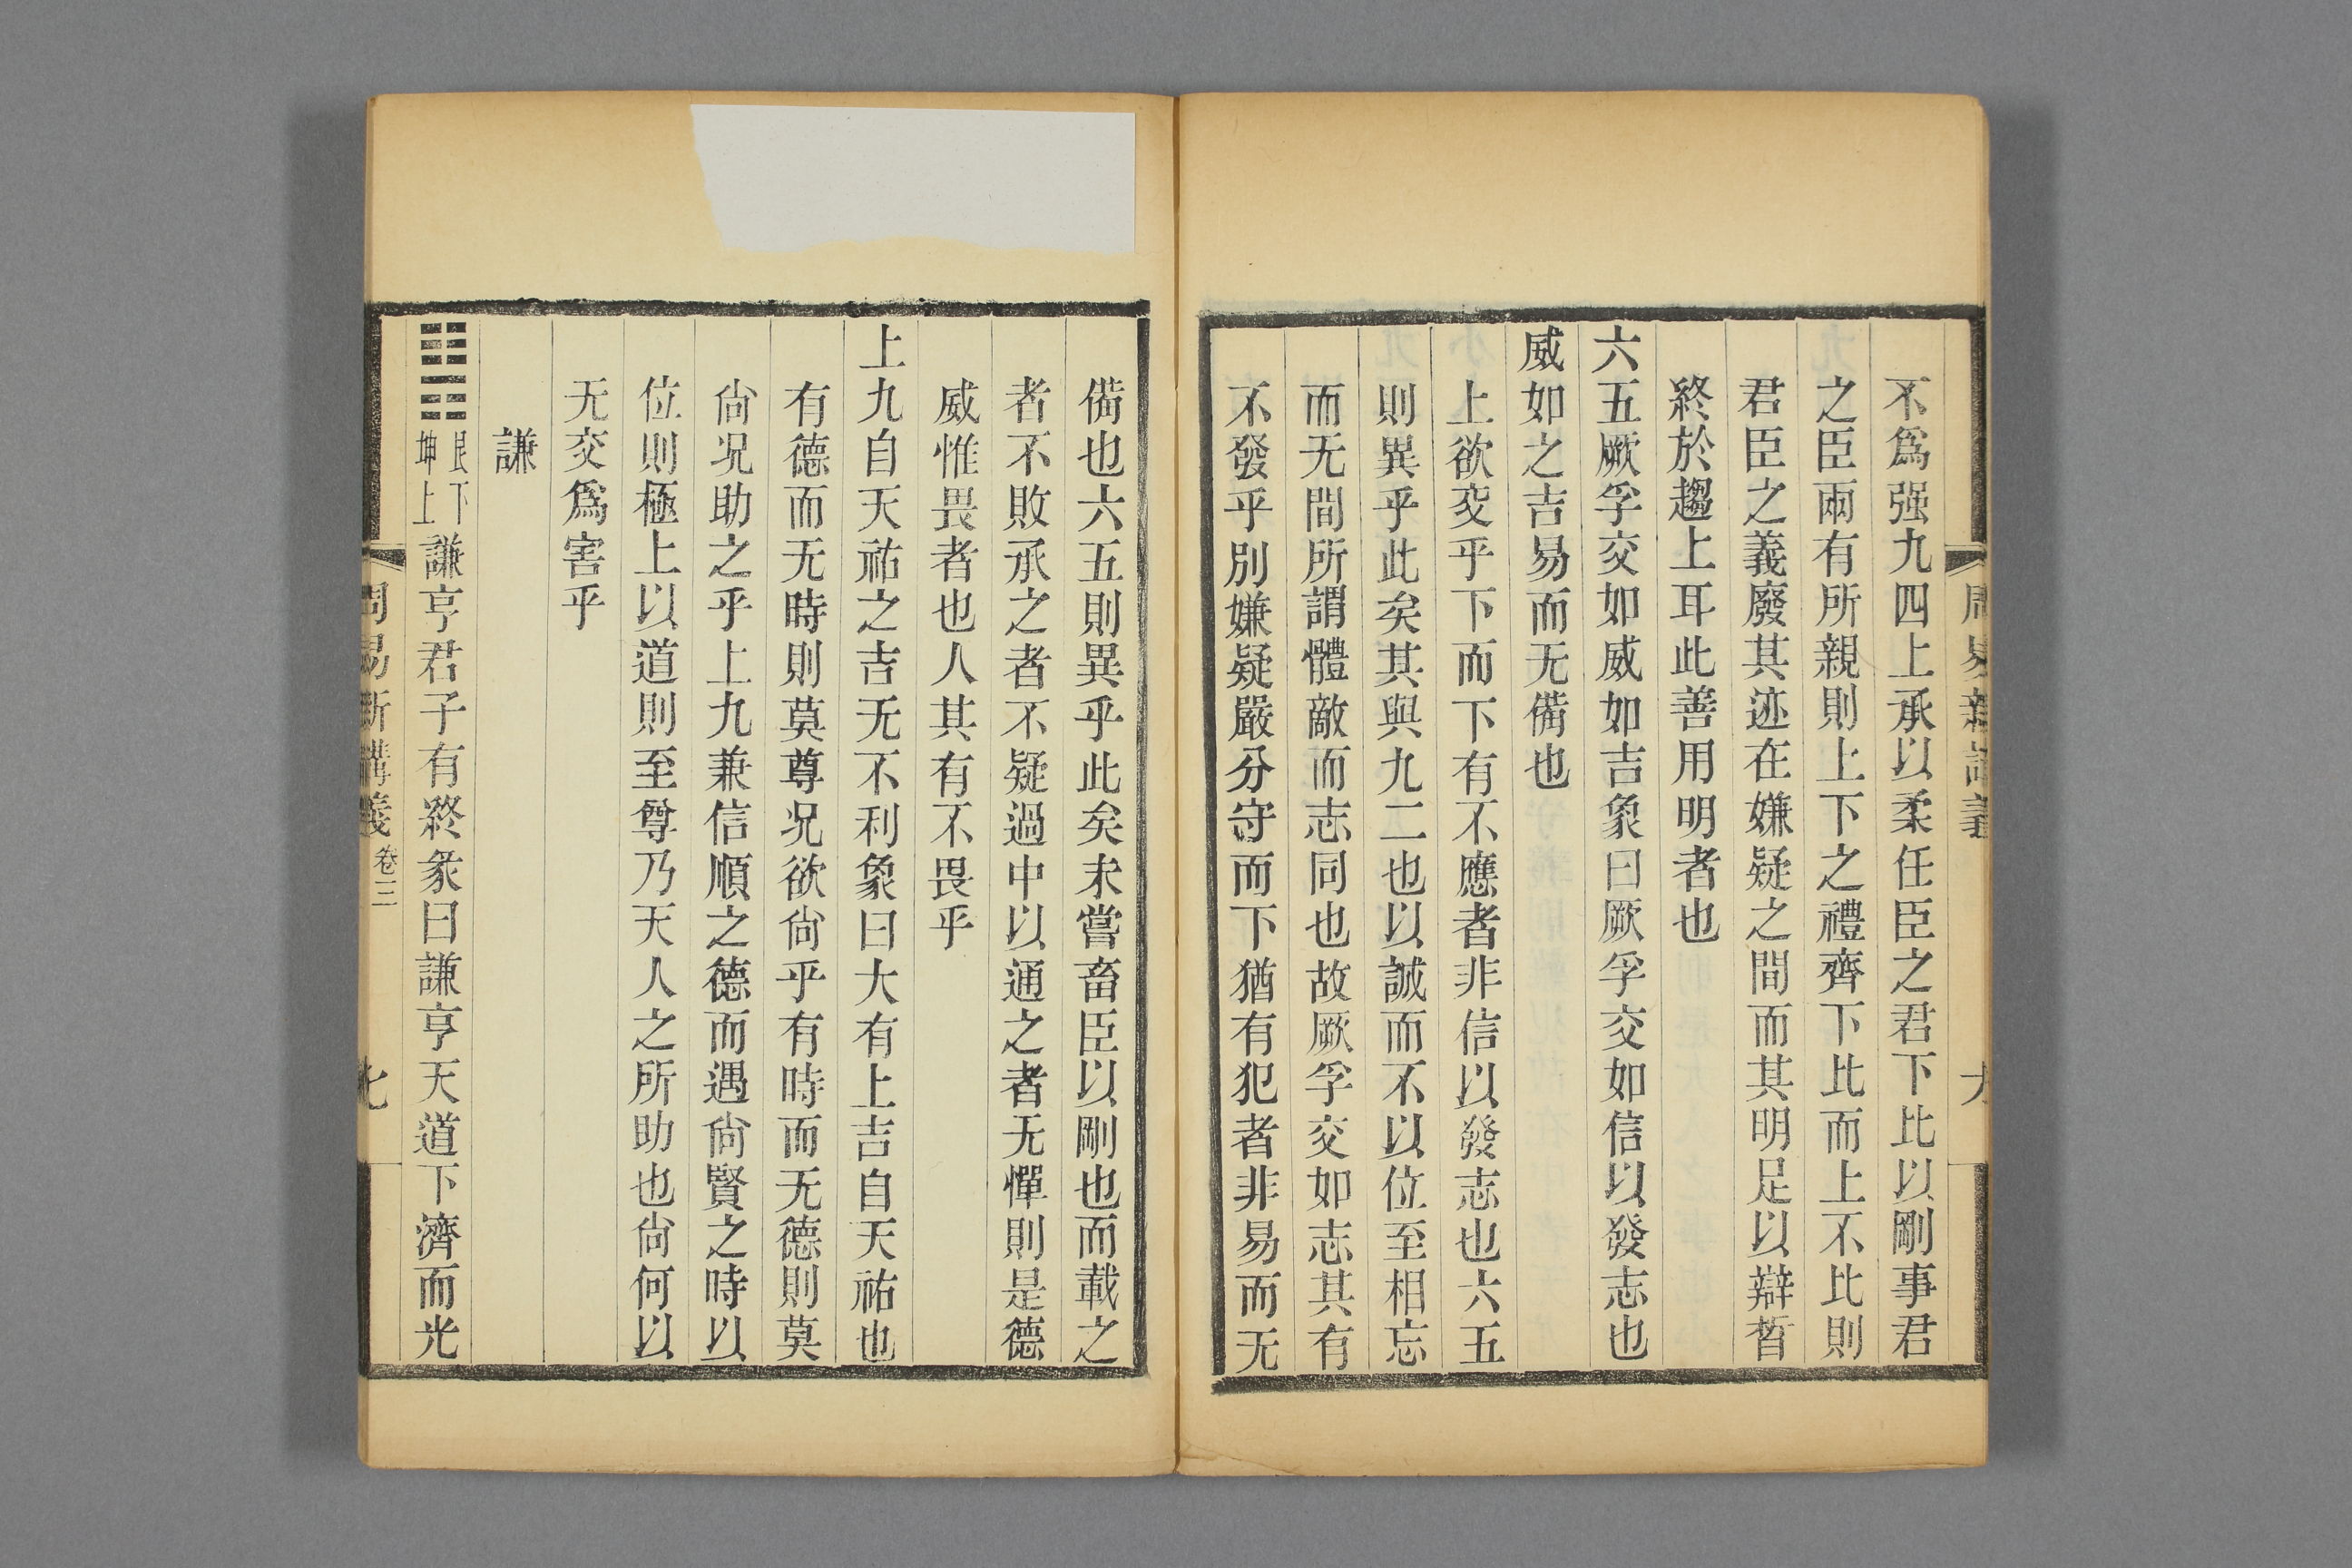 不爲强九四上承以柔任臣之君下比以剛事君
之臣兩有所親則上下之禮齊下比而上不比則
君臣之義廢其迹在嫌疑之間而其明足以辯晳
終於趨上耳此善用明者也
六五厥孚交如威如吉象曰厥孚交如信以發志也
威如之吉易而无備也
上欲交乎下而下有不應者非信以發志也六五
則異乎此矣其與九二也以誠而不以位至相忘
而无間所謂體敵而志同也故厥孚交如志其有
不發乎別嫌疑嚴分守而下猶有犯者非易而无
備也六五則異乎此矣未嘗畜臣以剛也而載之
者不敗承之者不疑過中以通之者无憚則是德
威惟畏者也人其有不畏乎
上九自天祐之吉无不利象曰大有上吉自天祐也
有德而无時則莫尊况欲尙乎有時而无德則莫
尙况助之乎上九兼信順之德而遇尙賢之時以
位則極上以道則至尊乃天人之所助也尙何以
无交爲害乎
謙
䷎艮下坤上謙亨君子有終彖曰謙亨天道下濟而光
周易新講義 卷三